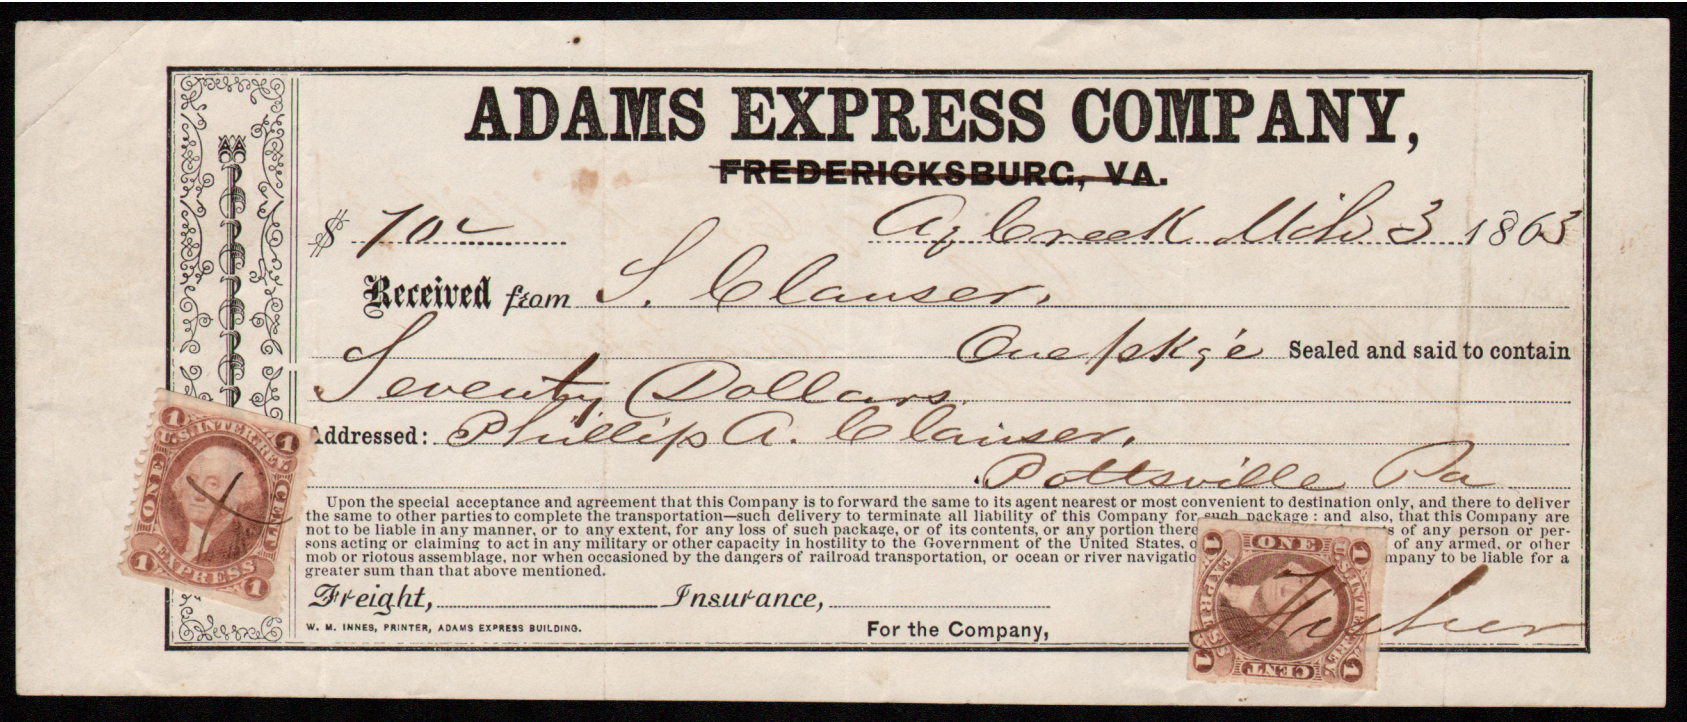 ADAMS EXPRESS COMPANY,
FREDERICKSBURG, VA.
$ 70 Aq Creek Mch 3 1863
Received from S. Clauser.
One pkge Sealed and said to contain
Seventy Dollars.
Addressed: Phillip A. Clauser.
Pottsville Pa
Upon the special acceptance and agreement that this Company is to forward the same to its agent nearest or most convenient to destination only, and there to deliver
the same to other parties to complete the transportation—such delivery to terminate all liability of this Company for such package : and also, that this Company are
not to be liable in any manner, or to any extent, for any loss of such package, or of its contents, or any portion there s of any person or per-
sons acting or claiming to act in any military or other capacity in hostility to the Government of the United States, o of any armed, or other
mob or riotous assemblage, nor when occasioned by the dangers of railroad transportation, or ocean or river navigatio mpany to be liable for a
greater sum than that above mentioned.
Freight, Insurance,
W. M. INNES, PRINTER, ADAMS EXPRESS BUILDING.
For the Company,
1 U.S. INTER. REV. 1
ONE CENT
1 EXPRESS 1
1 ONE 1
EXPRESS U.S. INTER. REV.
1 CENT 1